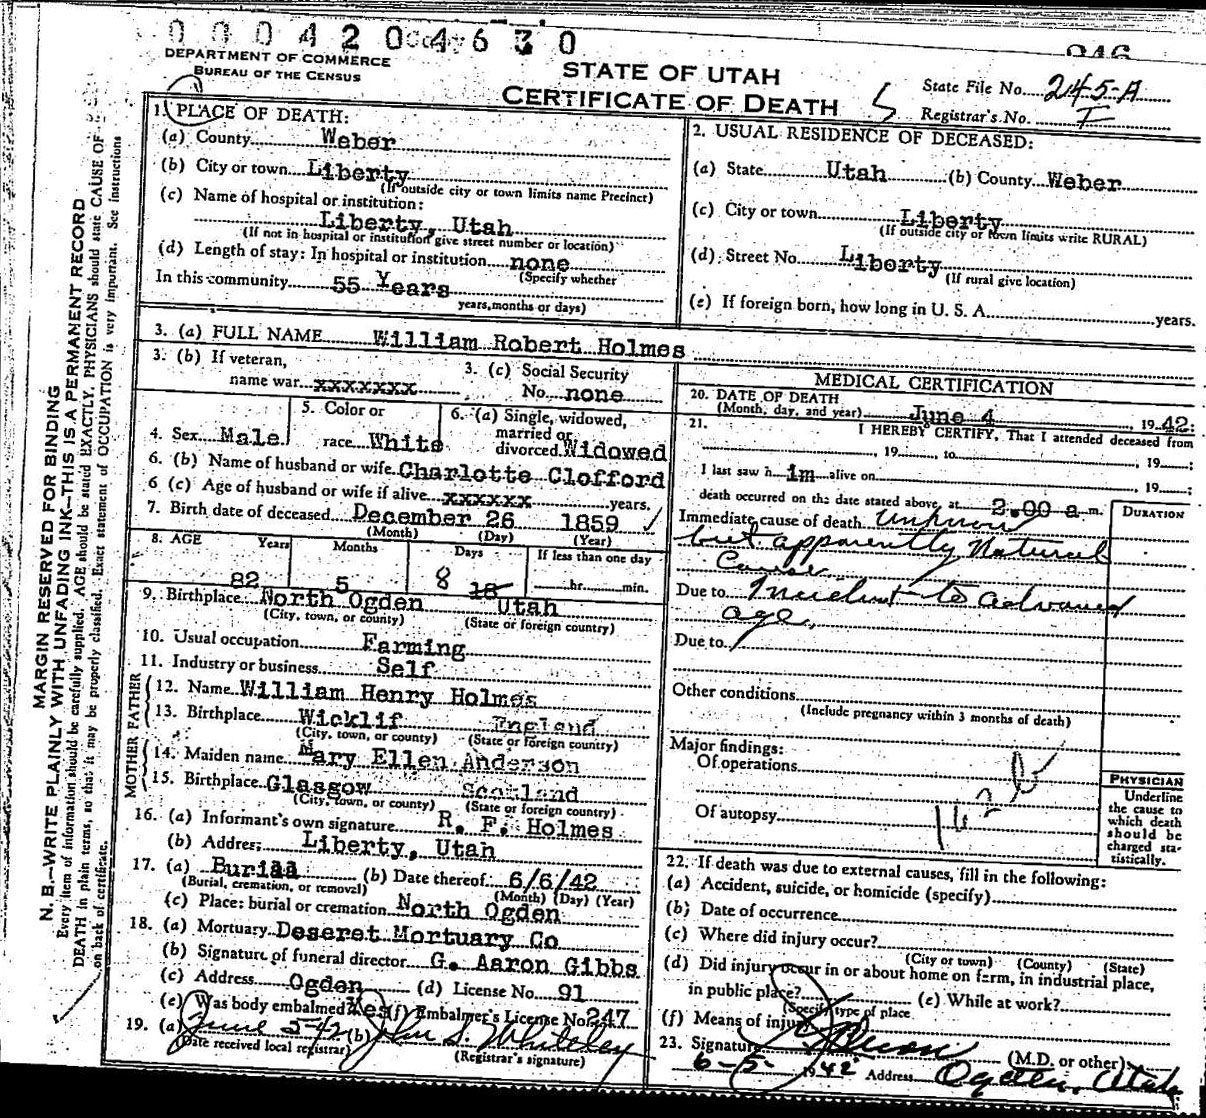 000420 4630
DEPARTMENT OF COMMERCE
BUREAU OF THE CENSUS
STATE OF UTAH
CERTIFICATE OF DEATH
946
State File No. 245-A
Registrar's No. I
MARGIN RESERVED FOR BINDING
N. B.—WRITE PLAINLY WITH UNFADING INK—THIS IS A PERMANENT RECORD
Every item of information should be carefully supplied. AGE should be stated EXACTLY. PHYSICIANS should state CAUSE OF
DEATH in plain terms, so that it may be properly classified. Exact statement of OCCUPATION is very important. See instructions
on back of certificate.
1. PLACE OF DEATH:
(a) County Weber
(b) City or town Liberty
(If outside city or town limits name Precinct)
(c) Name of hospital or institution:
Liberty, Utah
(If not in hospital or institution give street number or location)
(d) Length of stay: In hospital or institution none
(Specify whether
In this community 55 Years
years, months or days)
2. USUAL RESIDENCE OF DECEASED:
(a) State Utah (b) County Weber
(c) City or town Liberty
(If outside city or town limits write RURAL)
(d) Street No. Liberty
(If rural give location)
(e) If foreign born, how long in U. S. A. years.
3. (a) FULL NAME William Robert Holmes
3. (b) If veteran,
name war xxxxxxx
3. (c) Social Security
No. none
4. Sex Male
5. Color or
race White
6. (a) Single, widowed,
married or
divorced Widowed
6. (b) Name of husband or wife Charlotte Clofford
6 (c) Age of husband or wife if alive xxxxxx years.
7. Birth date of deceased December 26 1859
(Month) (Day) (Year)
8. AGE Years Months Days If less than one day
82 5 8 hr. min.
9. Birthplace North Ogden Utah
(City, town, or county) (State or foreign country)
10. Usual occupation Farming
11. Industry or business Self
FATHER
12. Name William Henry Holmes
13. Birthplace Wicklif England
(City, town, or county) (State or foreign country)
MOTHER
14. Maiden name Mary Ellen Anderson
15. Birthplace Glasgow Scotland
(City, town, or county) (State or foreign country)
16. (a) Informant's own signature R. F. Holmes
(b) Address Liberty, Utah
17. (a) Burial (b) Date thereof 6/6/42
(Burial, cremation, or removal) (Month) (Day) (Year)
(c) Place: burial or cremation North Ogden
18. (a) Mortuary Deseret Mortuary Co
(b) Signature of funeral director G. Aaron Gibbs
(c) Address Ogden (d) License No. 91
(e) Was body embalmed? Yes (f) Embalmer's License No. 247
19. (a) June 5-42 (b) S. Whiteley
(Date received local registrar) (Registrar's signature)
MEDICAL CERTIFICATION
20. DATE OF DEATH
(Month, day, and year) June 4, 19 42
21. I HEREBY CERTIFY, That I attended deceased from
, 19 , to , 19 ;
I last saw h im alive on , 19 ;
death occurred on the date stated above, at 2:00 a m.
DURATION
Immediate cause of death Unknown
but apparently Natural
Cause
Due to Incident to advanced
age,
Due to
Other conditions
(Include pregnancy within 3 months of death)
Major findings:
Of operations
Of autopsy
162 b
PHYSICIAN
Underline
the cause to
which death
should be
charged sta-
tistically.
22. If death was due to external causes, fill in the following:
(a) Accident, suicide, or homicide (specify)
(b) Date of occurrence
(c) Where did injury occur?
(City or town) (County) (State)
(d) Did injury occur in or about home on farm, in industrial place,
in public place? (e) While at work?
(Specify type of place
(f) Means of injury
23. Signature (M.D. or other)
6-5- 1942 Address Ogden, Utah